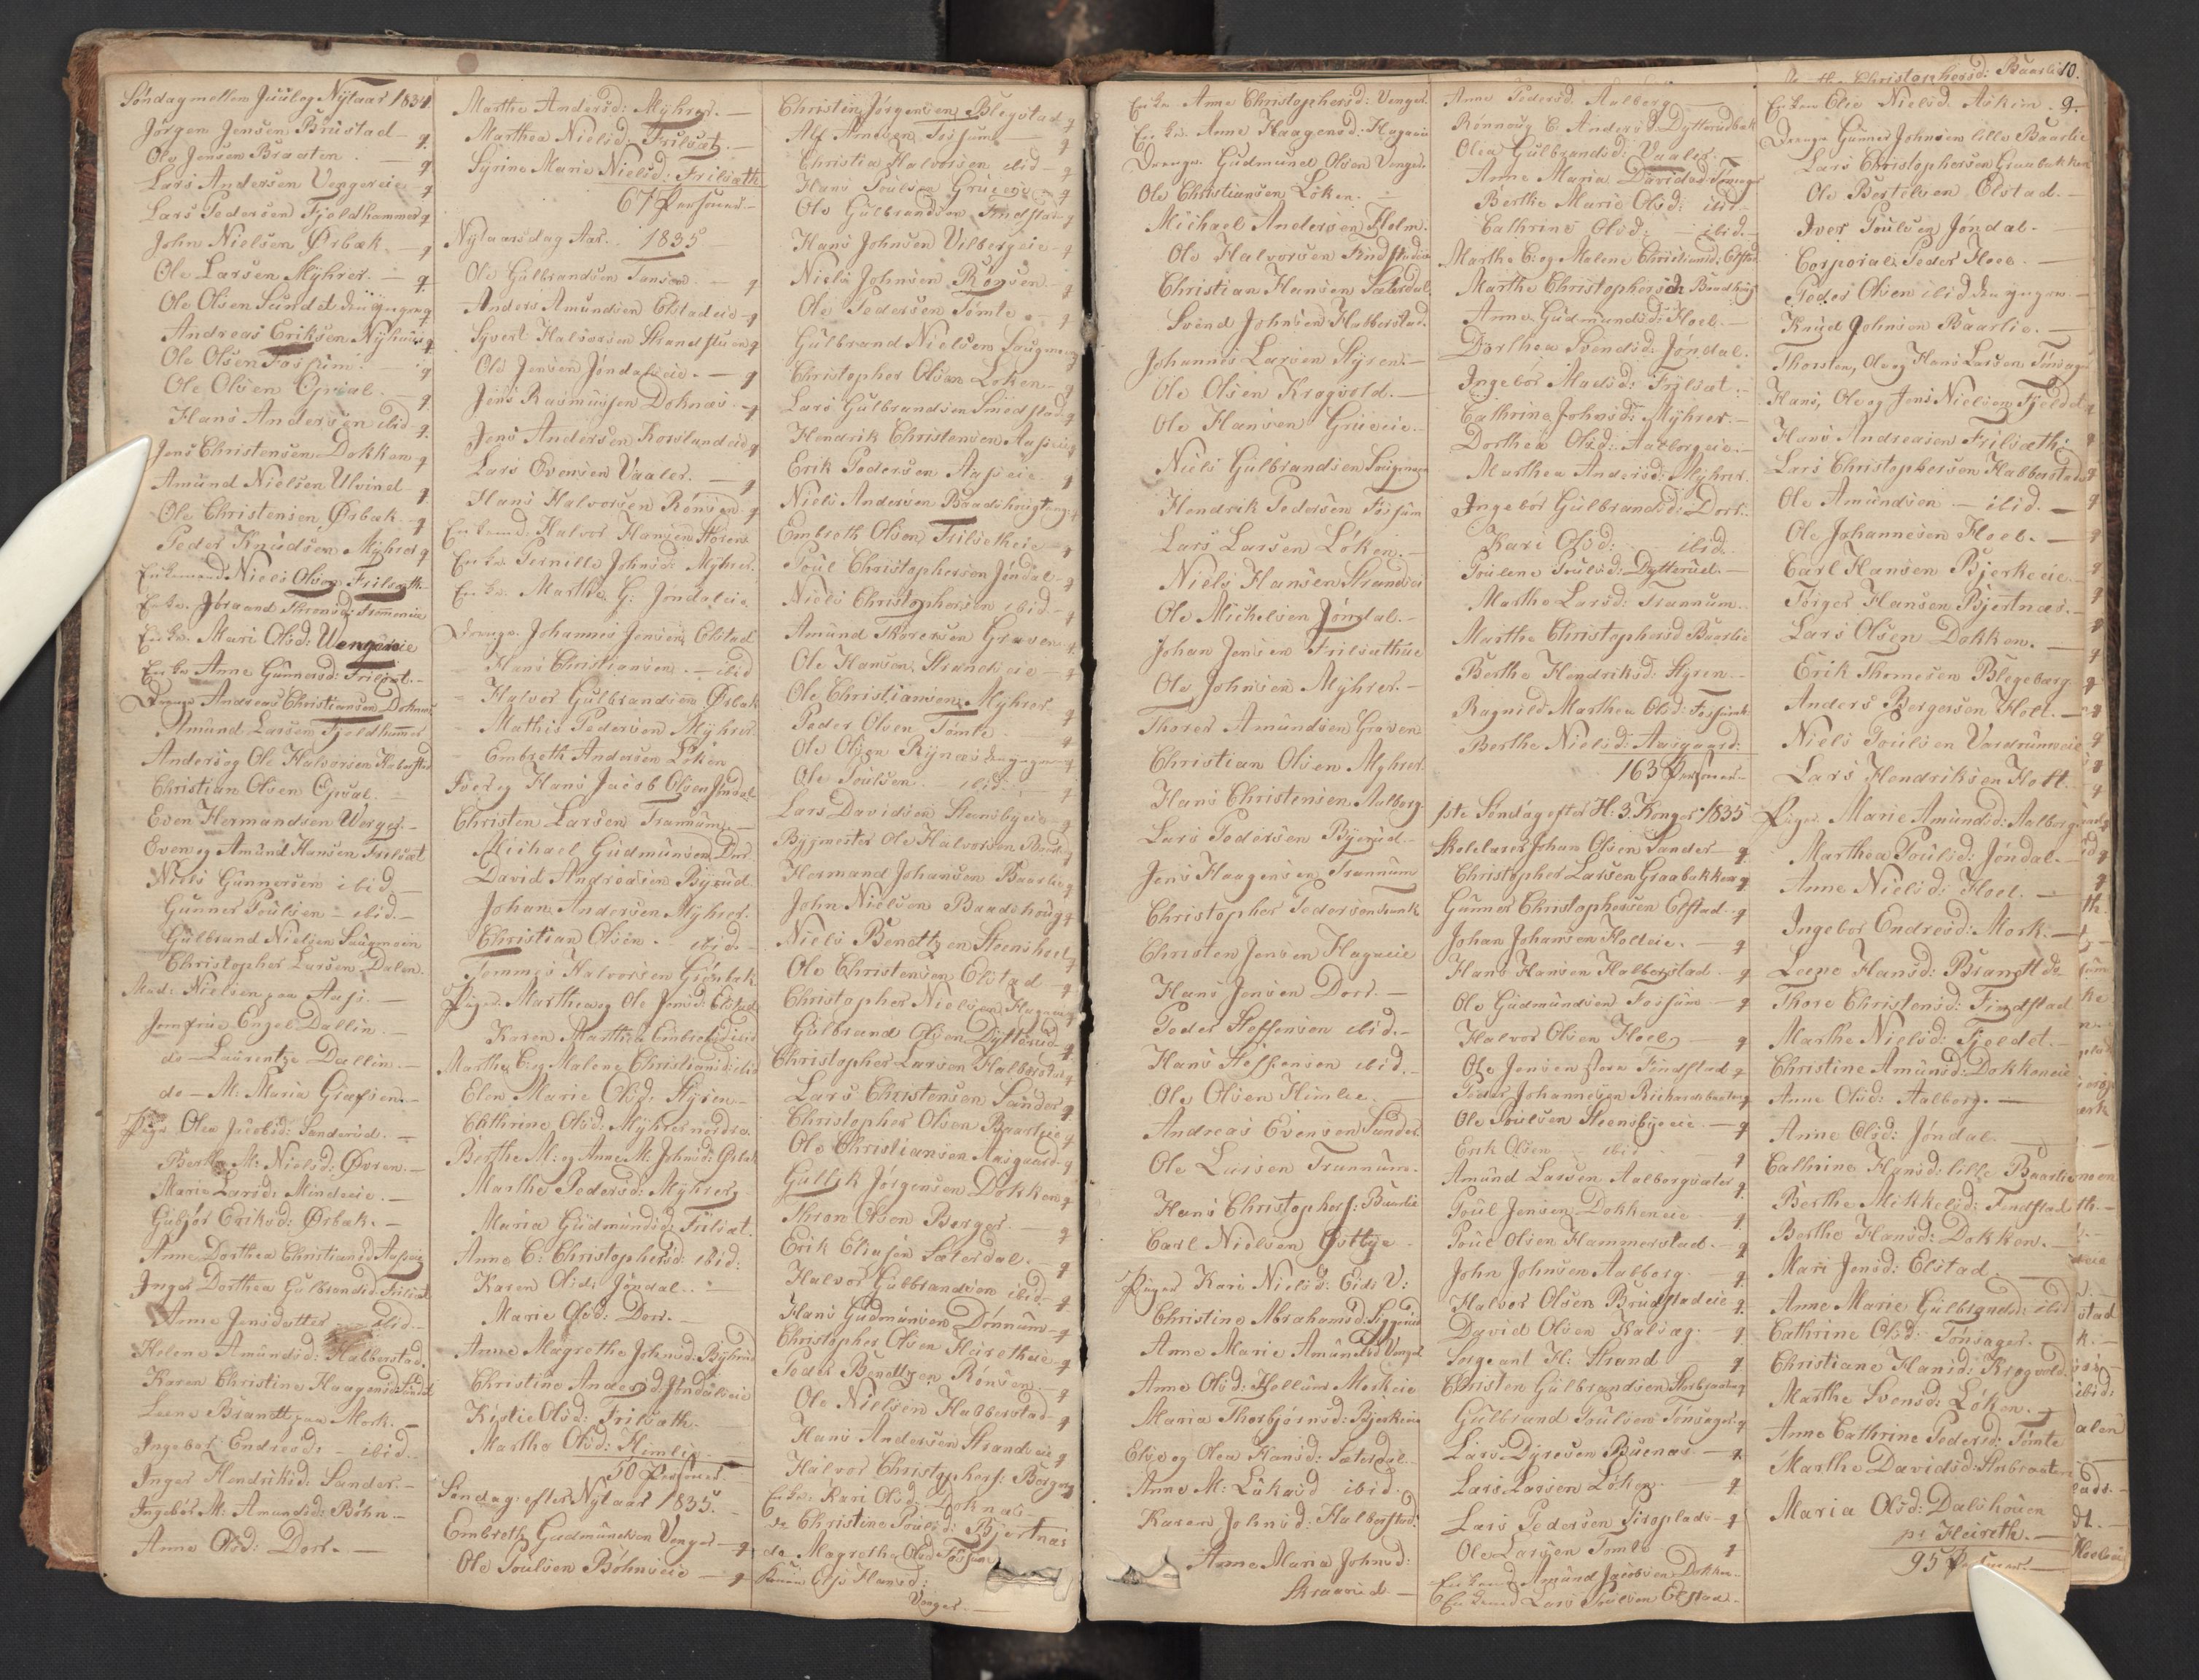 Søndag mellem Juul og Nytaar 1834
Jørgen Jensen Brustad q
Ole Jensen Braaten q
Lars Andersen Vengereie q
Lars Pedersen Fjeldhammer q
John Nielsen Ørbæk q
Ole Larsen Myhrer q
Ole Olsen Sundet den yngre q
Andreas Eriksen Nyhuus q
Ole Olsen Fossum q
Ole Olsen q
Hans Andersen ibid q
Jens Christensen Dokken q
Amund Nielsen Ulvind q
Ole Christensen Ørbæk q
Peder Knudsen Myhrer q
Enkemand Niels Olsen Frilseth
Enke Thronsd:
Enke Mari Olsd: Wengereie
Enke Anne Gunnersd: Frilset
Drenge Andreas Christiansen Doknæs
Amund Larsen Fjeldhammer
Anders og Ole Halvorsen Haberstad
Christian Olsen
Even Hermandsen Wenger
Even og Amund Hansen Frilsæt
Niels Gunnersen ibid
Gunner Poulsen ibid
Gulbrand Nielsen Saugmoen
Christopher Larsen Dalen
Mad: Nielsen paa Aas
Jomfrue Engel Dallin
do Laurentze Dallin
do M: Maria
Piger Olea Jacobsd: Sanderud
Berthe M: Nielsd: Øvren
Marie Larsd: Mindeeie
Gubjør Eriksd: Ørbæk
Anne Dorthea Christiansd:
Inger Dorthea Gulbrandsd: Frilset
Anne Jensdatter ibid
Helene Amundsd: Halberstad
Karen Christine Haagensd:
Leene Brandt paa Mork
Ingebor Endresd: ibid
Inger Hendriksd: Sander
Ingebor M: Amundsd: Bøhn
Anne Olsd: Dorr
Marthe Andersd: Myhrer
Marthea Nielsd: Frilsæt
Syrine Marie Nielsd: Frilsæth
67 Personer
Nytaarsdag Aar 1835
Ole Gulbrandsen q
Anders Amundsen Elstadeie q
Syvert Halvorsen Strandstuen q
Ole Jensen Jøndaleie q
Jens Rasmussen Doknæs q
Jens Andersen q
Lars Evensen Vaaler q
Hans Halvorsen Rønsen q
Enkemd. Halvor Hansen
Enke Pernille Johnsd: Myhrer
Enke Marthe G: Jøndaleie
Drenge Johannes Jensen Elstad
Hans Christiansen ibid
Halvor Gulbrandsen Ørbæk
Mathis Pedersen Myhrer
Embreth Andersen Løken
Iver og Hans Jacob Olsen Jøndal
Christen Larsen Trannum
Michael Gudmundsen Dorr
David Andreasen Byrud
Johan Andersen Myhrer
Christian Olsen ibid
Tommes Halvorsen
Piger Marthea og Ole Jensd: Elstad
Karen Marthea Embretsd: ibid
Marthe E: og Malene Christiansd: ibid
Elen Marie Olsd: Styren
Cathrine Olsd: Myhrer nordre
Berthe M: og Anne M: Johnsd: Ørbæk
Marthe Pedersd: Myhrer
Maria Gudmundsd: Frilsæt
Anne C: Christophersd: ibid:
Karen Olsd: Jøndal
Marie Olsd: Dorr
Anne Magrethe Johnsd: Byhrud
Christine Andersd: Jøndaleie
Kirstie Olsd: Frilsæth
Marthe Olsd: Himlie
50 Personer
Søndag efter Nytaar 1835
Embreth Gudmundsen Venger q
Ole Poulsen Bøhnseie q
Christen Jørgensen Blegstad q
Alf Arnesen Fossum q
Christian Halvorsen ibid q
Hans Poulsen Grueeie q
Ole Gulbrandsen Findstad q
Hans Johnsen Vilbergeie q
Niels Johnsen Rønsen q
Ole Pedersen Tomte q
Gulbrand Nielsen Saugmoen q
Christopher Olsen Løken q
Lars Gulbrandsen Smedstad q
Hendrik Christensen q
Erik Pedersen q
Niels Andersen q
Embreth Olsen Frilsetheie q
Poul Christophersen Jøndal q
Niels Christophersen ibid q
Amund Thoresen Graven q
Ole Hansen Strandeie q
Ole Christiansen Myhrer q
Peder Olsen Tomte q
Ole Olsen Rynæs den yngre q
Ole Poulsen ibid q
Lars Davidsen Steensbyeie q
Bygmester Ole Halvorsen
Hermand Johansen Baarlie q
John Nielsen Baadshoug q
Niels Benttzen Steensholt q
Ole Christensen Elstad q
Christopher Nielsen q
Gulbrand Olsen Dytterud q
Christopher Larsen Halberstad q
Lars Christensen Sander q
Christopher Olsen Baarlieie q
Ole Christiansen Aasgaard q
Gullik Jørgensen Dokken q
Thron Olsen Berger q
Erik Eliasen Sæterdal q
Halvor Gulbrandsen ibid q
Hans Gudmundsen Dønnum q
Christopher Olsen Heiretheie q
Peder Benttzen Rønsen q
Ole Nielsen Habberstad q
Hans Andersen Strandeie q
Halvor Christophers: Berger q
Enke: Kari Olsd: Doknæs
do Christine Poulsd: Bjertnæs
do Magrethe Olsd: Fossum
Hansd:
Venger
10.
Christophersd: Baarlie
Enke Anne Christophersd: Venger
Enke Anne Haagensd: Hageeie
Drenge Gudmund Olsen Venger
Ole Christiansen Løken
Michael Andersen Holm
Ole Halvorsen Findstadeie
Christian Hansen Sæterdal
Svend Johnsen Habberstad
Johannes Larsen Styren
Ole Olsen Krogvold
Ole Hansen Grueeie
Niels Gulbrandsen Saugmoen
Hendrik Pedersen Fossum
Lars Larsen Løken
Niels Hansen Strandeie
Ole Mickelsen Jøndal
Johan Jensen Frilsætheie
Ole Johnsen Myhrer
Thorer Amundsen Graven
Christian Olsen Myhrer
Hans Christensen Aalborg
Lars Pedersen Byerud
Jens Haagensen Trannum
Christopher Pedersen
Christen Jensen Hageeie
Hans Jensen Dorr
Peder Steffensen ibid
Hans Steffensen ibid
Ole Olsen Himlie
Andreas Evensen Sander
Ole Larsen Trannum
Hans Christophers: Baarlie
Carl Nielsen
Piger Kari Nielsd: Eids V:
Christine Abrahamsd:
Anne Marie Amundsd: Venger
Anne Olsd: Morkeie
Maria Thorbjørnsd: Bjerkeeie
Elise og Olea Hansd: Sæterdal
Anne M: Lukasd ibid
Karen Johnsd: Halberstad
Anne Maria Johnsd:
Skraarud
Anne Pedersd. Aalborg
Rønnoug C. Andersd: Dytterudbak
Olea Gulbrandsd: Vaaler
Anne Maria Davidsd: Tømte
Berthe Marie Olsd: ibid
Cathrine Olsd: ibid
Marthe C: og Malene Christiansd: Elstad
Marthe Christophersd: Baadshoug
Anne Gudmundsd: Hoel
Dorthea Svendsd: Jøndal
Ingebor Madsd: Frilsæt
Cathrine Johnsd: Myhrer
Dorthea Olsd: Aalborgeie
Marthea Andersd: Myhrer
Ingebor Gulbrandsd: Dorr
Kari Olsd: ibid
Poulene Poulsd: Dytterud
Marthe Larsd: Trannum
Marthe Christophersd Baarlie
Berthe Hendriksd: Styren
Ragnild Marthea Olsd: Fossum
Berthe Nielsd: Aasgaard
163 Personer
1ste Søndag efter H: 3 Konger 1835
Skolelærer Johan Olsen Sander q
Christopher Larsen Graabakken q
Gunner Christophersen Elstad q
Johan Johansen Holteie q
Hans Hansen Halberstad q
Ole Gudmundsen Fossum q
Halvor Olsen Hoel q
Ole Jensen store Findstad q
Peder Johannesen q
Ole Poulsen Steensbyeie q
Erik Olsen ibid q
Amund Larsen Aalborgsæter q
Poul Jensen Dokkeneie q
Poul Olsen Hammerstad q
John Johnsen Aalborg q
Halvor Olsen Brudstadeie q
David Olsen q
Sergeant H: Strand q
Christen Gulbrandsen q
Gulbrand Poulsen Tønsager q
Lars Dyresen Buenæs q
Lars Larsen Løken q
Lars Pedersen q
Ole Larsen Tomte q
Enkemd Amund Jacobsen Dokken
Enkemd Lars Poulsen Elstad
Enken Elie Nielsd. Asken
Drenge Gunner Johnsen lille Baarlie
Lars Christophersen Graabakken
Ole Bertelsen Elstad
Iver Poulsen Jøndal
Corporal Peder Hoel
Peder Olsen ibid den yngre
Knud Johnsen Baarlie
Thorsten, Ole og Hans Larsen Tønsager
Hans, Ole og Jens Nielsen Fjeldet
Hans Andreasen Frilsæth
Lars Christophersen Halberstad
Ole Amundsen ibid
Ole Johannesen Hoel
Carl Hansen Bjerkeeie
Tørger Hansen Bjertnæs
Lars Olsen Dokken
Erik Thomesen Blegeberg
Anders Bergersen Holt
Niels Poulsen
Lars Hendriksen Holt
Piger Marie Amundsd: Aalborg
Marthea Poulsd: Jøndal
Anne Nielsd: Hoel
Ingebor Endresd: Mork
Leene Hansd: Brandt
Thore Christensd: Findstad
Marthe Nielsd: Fjeldet
Christine Amundsd: Dokkeneie
Anne Olsd: Aalborg
Anne Olsd: Jøndal
Cathrine Hansd: lille Baarlie
Berthe Mikkelsd: Findstad
Berthe Hansd: Dokken
Mari Jensd: Elstad
Anne Marie Gulbrandsd: ibid
Cathrine Olsd: Tønsager
Christiane Hansd: Krogvold
Marthe Svensd: Løken
Anne Cathrine Pedersd: Tomte
Marthe Davidsd:
Maria Olsd: Dalshouen
pr Heireth
95 Personer